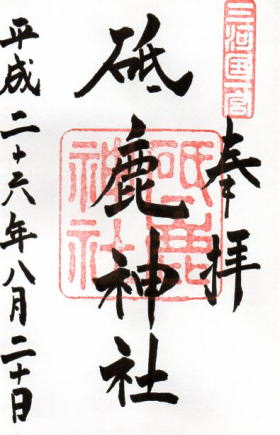 三河國一宮
奉拝
砥鹿神社
砥鹿
神社
平成二十六年八月二十日